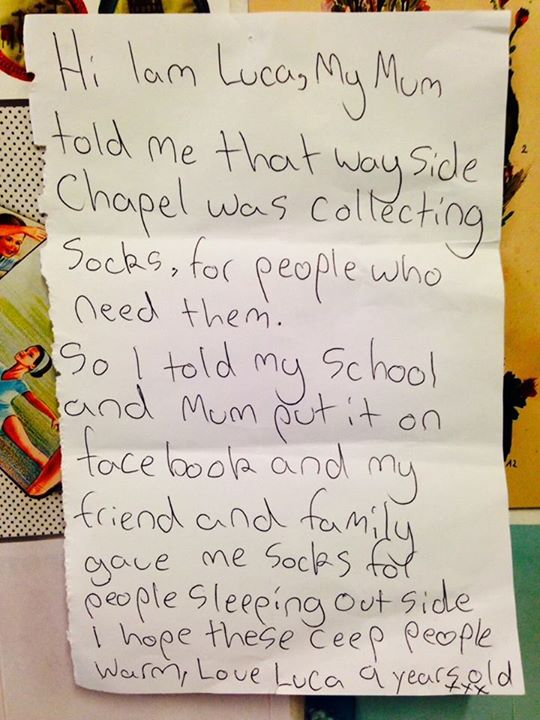 Hi I am Luca, My Mum
told me that way side
Chapel was collecting
Socks, for people who
need them.
So I told my School
and Mum put it on
facebook and my
friend and family
gave me Socks for
people sleeping out side
I hope these ceep people
warm, Love Luca 9 years old
xxx
2
12